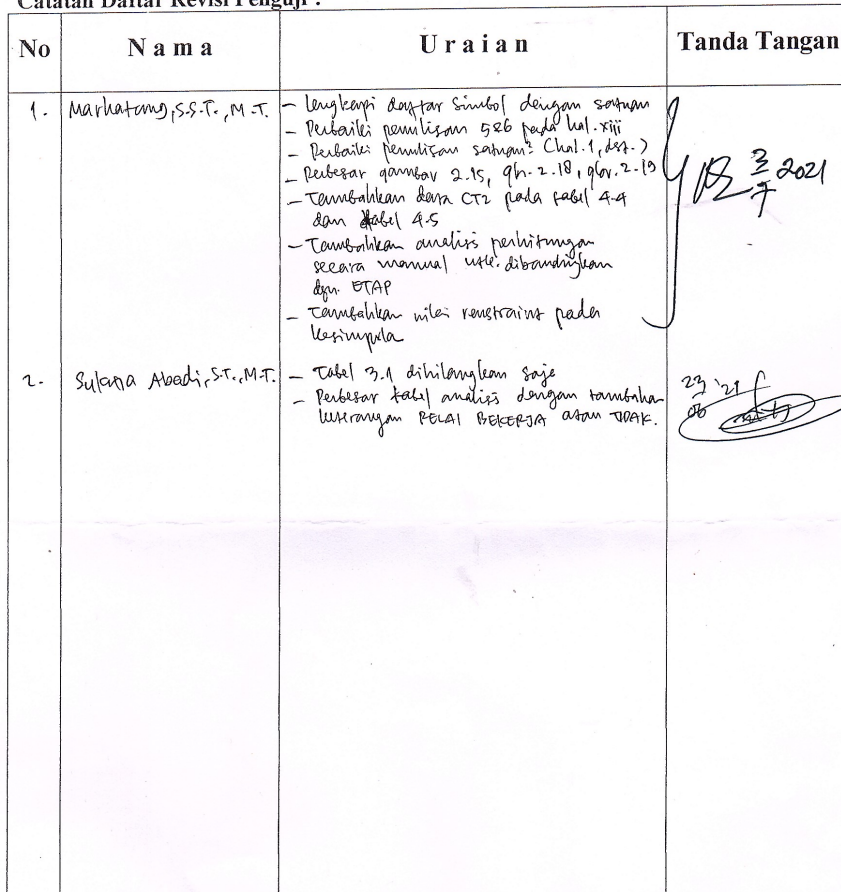 Catatan Daftar Revisi Penguji :
No
Nama
Uraian
Tanda Tangan
1.
Marhatang, S.S.T., M.T.
- Lengkapi daftar simbol dengan satuan
- Perbaiki penulisan 526 pada hal. xiii
- Perbaiki penulisan satuan² (hal. 1, dst.)
- Perbesar gambar 2.15, gbr. 2.18, gbr. 2.19
- Tambahkan data CT2 pada tabel 4.4
dan tabel 4.5
- Tambahkan analisis perhitungan
secara manual utk. dibandingkan
dgn. ETAP
- Tambahkan nilai renstraint pada
kesimpula
3/7 2021
2.
Sulana Abadi, S.T., M.T.
- Tabel 3.1 dihilangkan saja
- Perbesar tabel analisis dengan tambahan
keterangan RELAI BEKERJA atau TIDAK.
23/06 '21